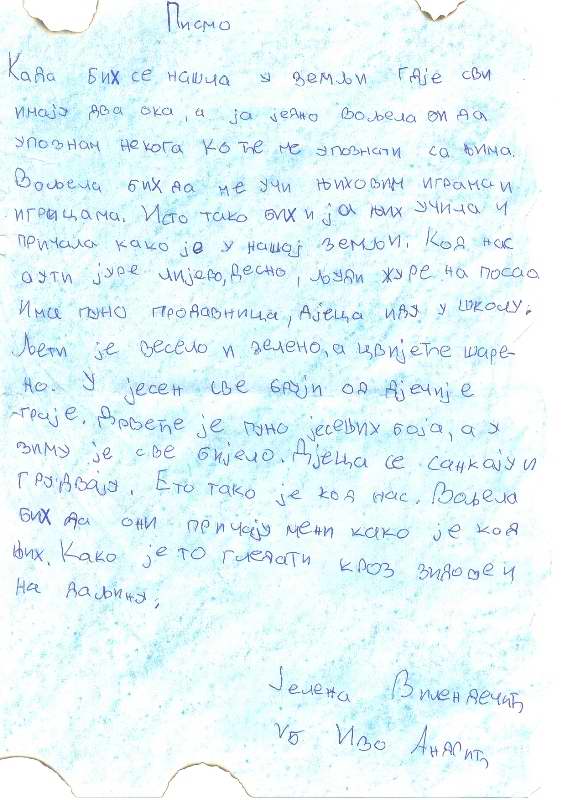 Писмо
Када бих се нашла у земљи гдје сви
имају два ока, а ја једно вољела би да
упознам некога ко ће ме упознати са њима.
Вољела бих да ме учи њиховим играма и
игрицама. Исто тако бих и ја њих учила и
причала како је у нашој земљи. Код нас
аути јуре лијево, десно, људи журе на посао
Има пуно продавница, дјеца иду у школу.
Љети је весело и зелено, а цвијеће шаре-
но. У јесен све бруји од дјечије
граје. Дрвеће је пуно јесењих боја, а у
зиму је све бијело. Дјеца се санкају и
грудвају. Ето тако је код нас. Вољела
бих да они причају мени како је код
њих. Како је то гледати кроз зидове и
на даљину.
Јелена
Vб Иво Андрић